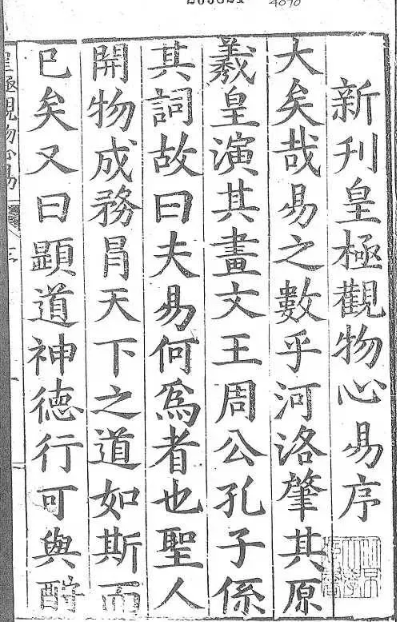 新刋皇極觀物心易序
大矣哉易之數乎河洛肇其原
羲皇演其畫文王周公孔子係
其詞故曰夫易何爲者也聖人
開物成務冐天下之道如斯而
已矣又曰顯道神德行可與酧
皇極觀物心易